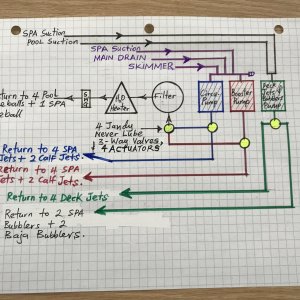 SPA Suction
Pool Suction
SPA Suction
MAIN DRAIN
SKIMMER
Return to 4 Pool
eballs + 1 SPA
eball
H2O
Heater
Filter
Circu.
Pump
Booster
Pump
Deck
Jets &
Bubbler
Pump
4 Jandy
Never Lube
3-Way Valves,
+ ACTUATORS
Return to 4 SPA
Jets + 2 Calf Jets.
Return to 4 SPA
Jets + 2 Calf Jets.
Return to 4 Deck Jets
Return to 2 SPA
Bubblers + 2
Baja Bubblers.